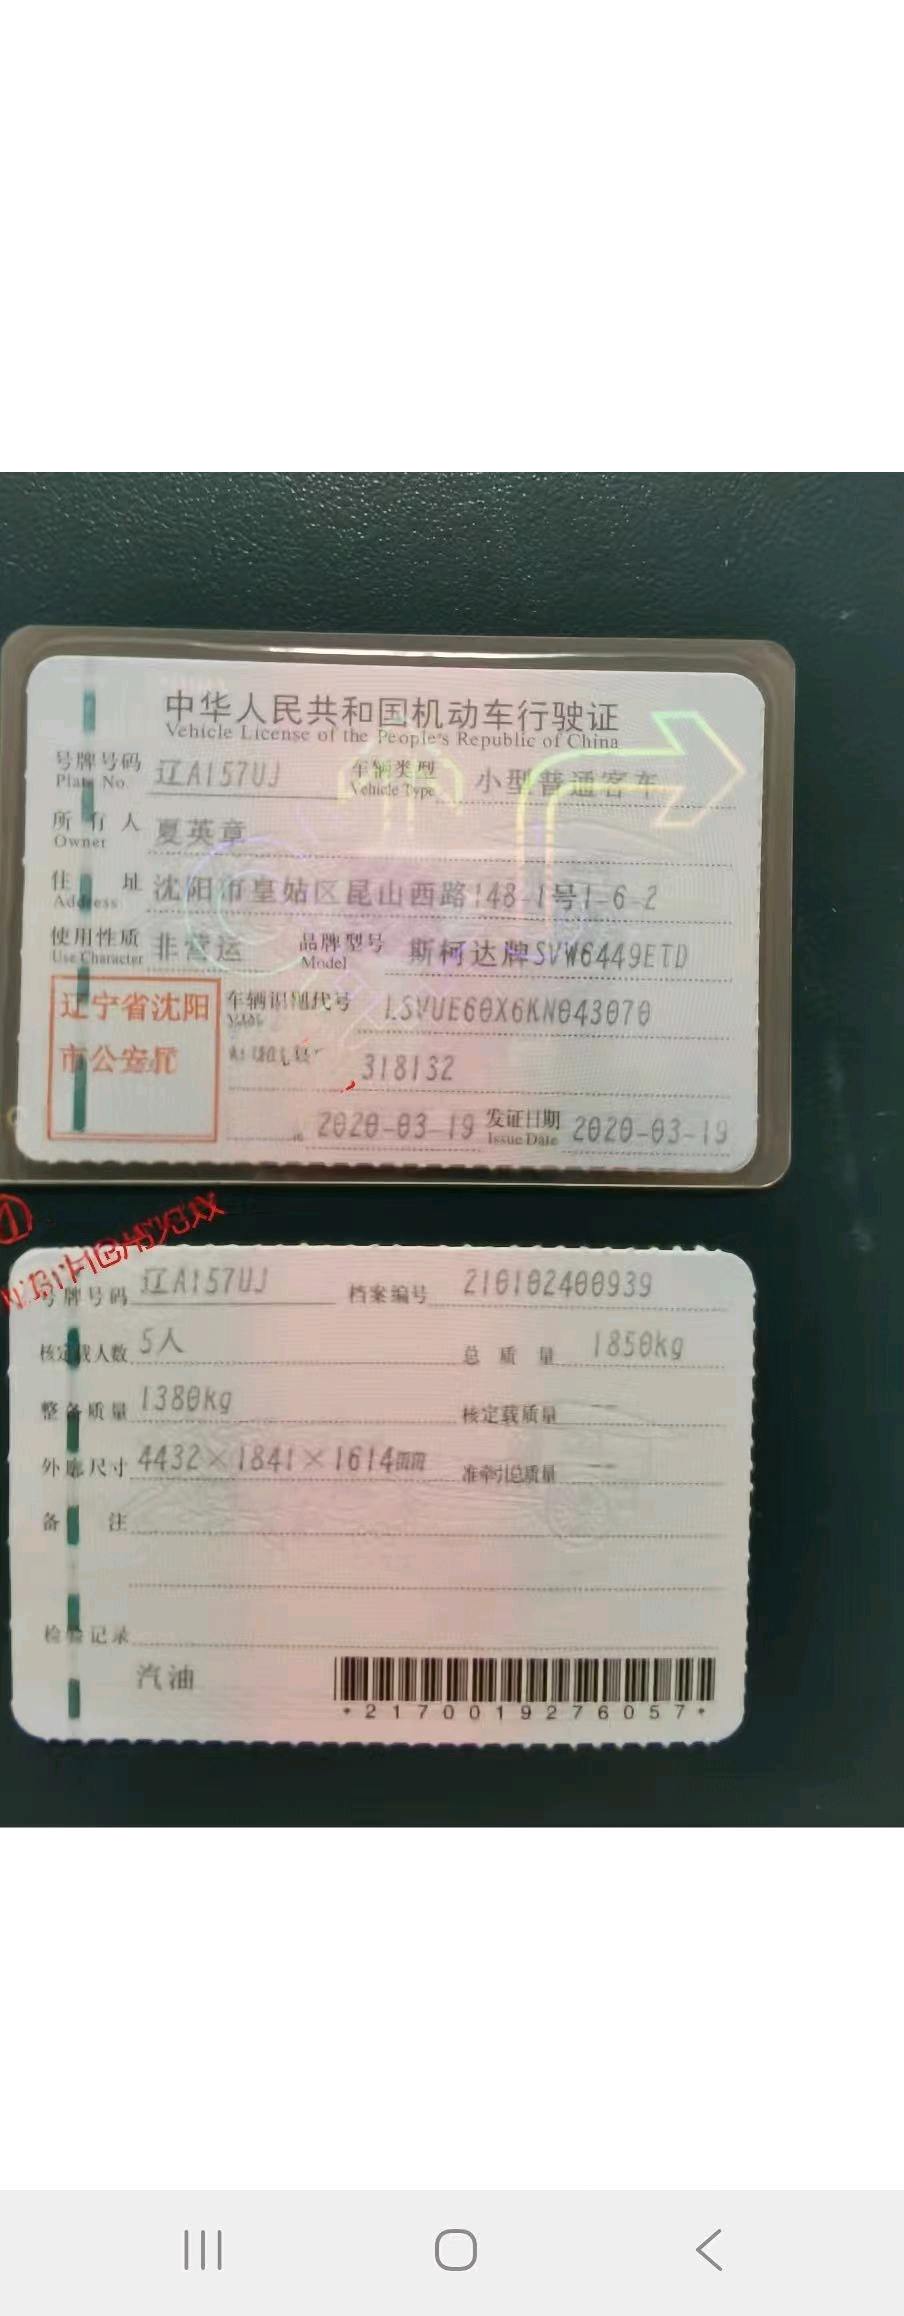 中华人民共和国机动车行驶证
Vehicle License of the People's Republic of China
号牌号码 辽A157UJ 车辆类型 小型普通客车
Plate No. Vehicle Type
所有人 夏英章
Owner
住址 沈阳市皇姑区昆山西路148-1号1-6-2
Address
使用性质 非营运 品牌型号 斯柯达牌SVW6449ETD
Use Character Model
辽宁省沈阳 车辆识别代号 LSVUE60X6KN043070
市公安局
318132
2020-03-19 发证日期 2020-03-19
Issue Date
①
号牌号码 辽A157UJ 档案编号 210102400939
核定载人数 5人 总质量 1850kg
整备质量 1380kg 核定载质量 --
外廓尺寸 4432×1841×1614mm 准牵引总质量 --
备注
检验记录
汽油
*2170019276057*